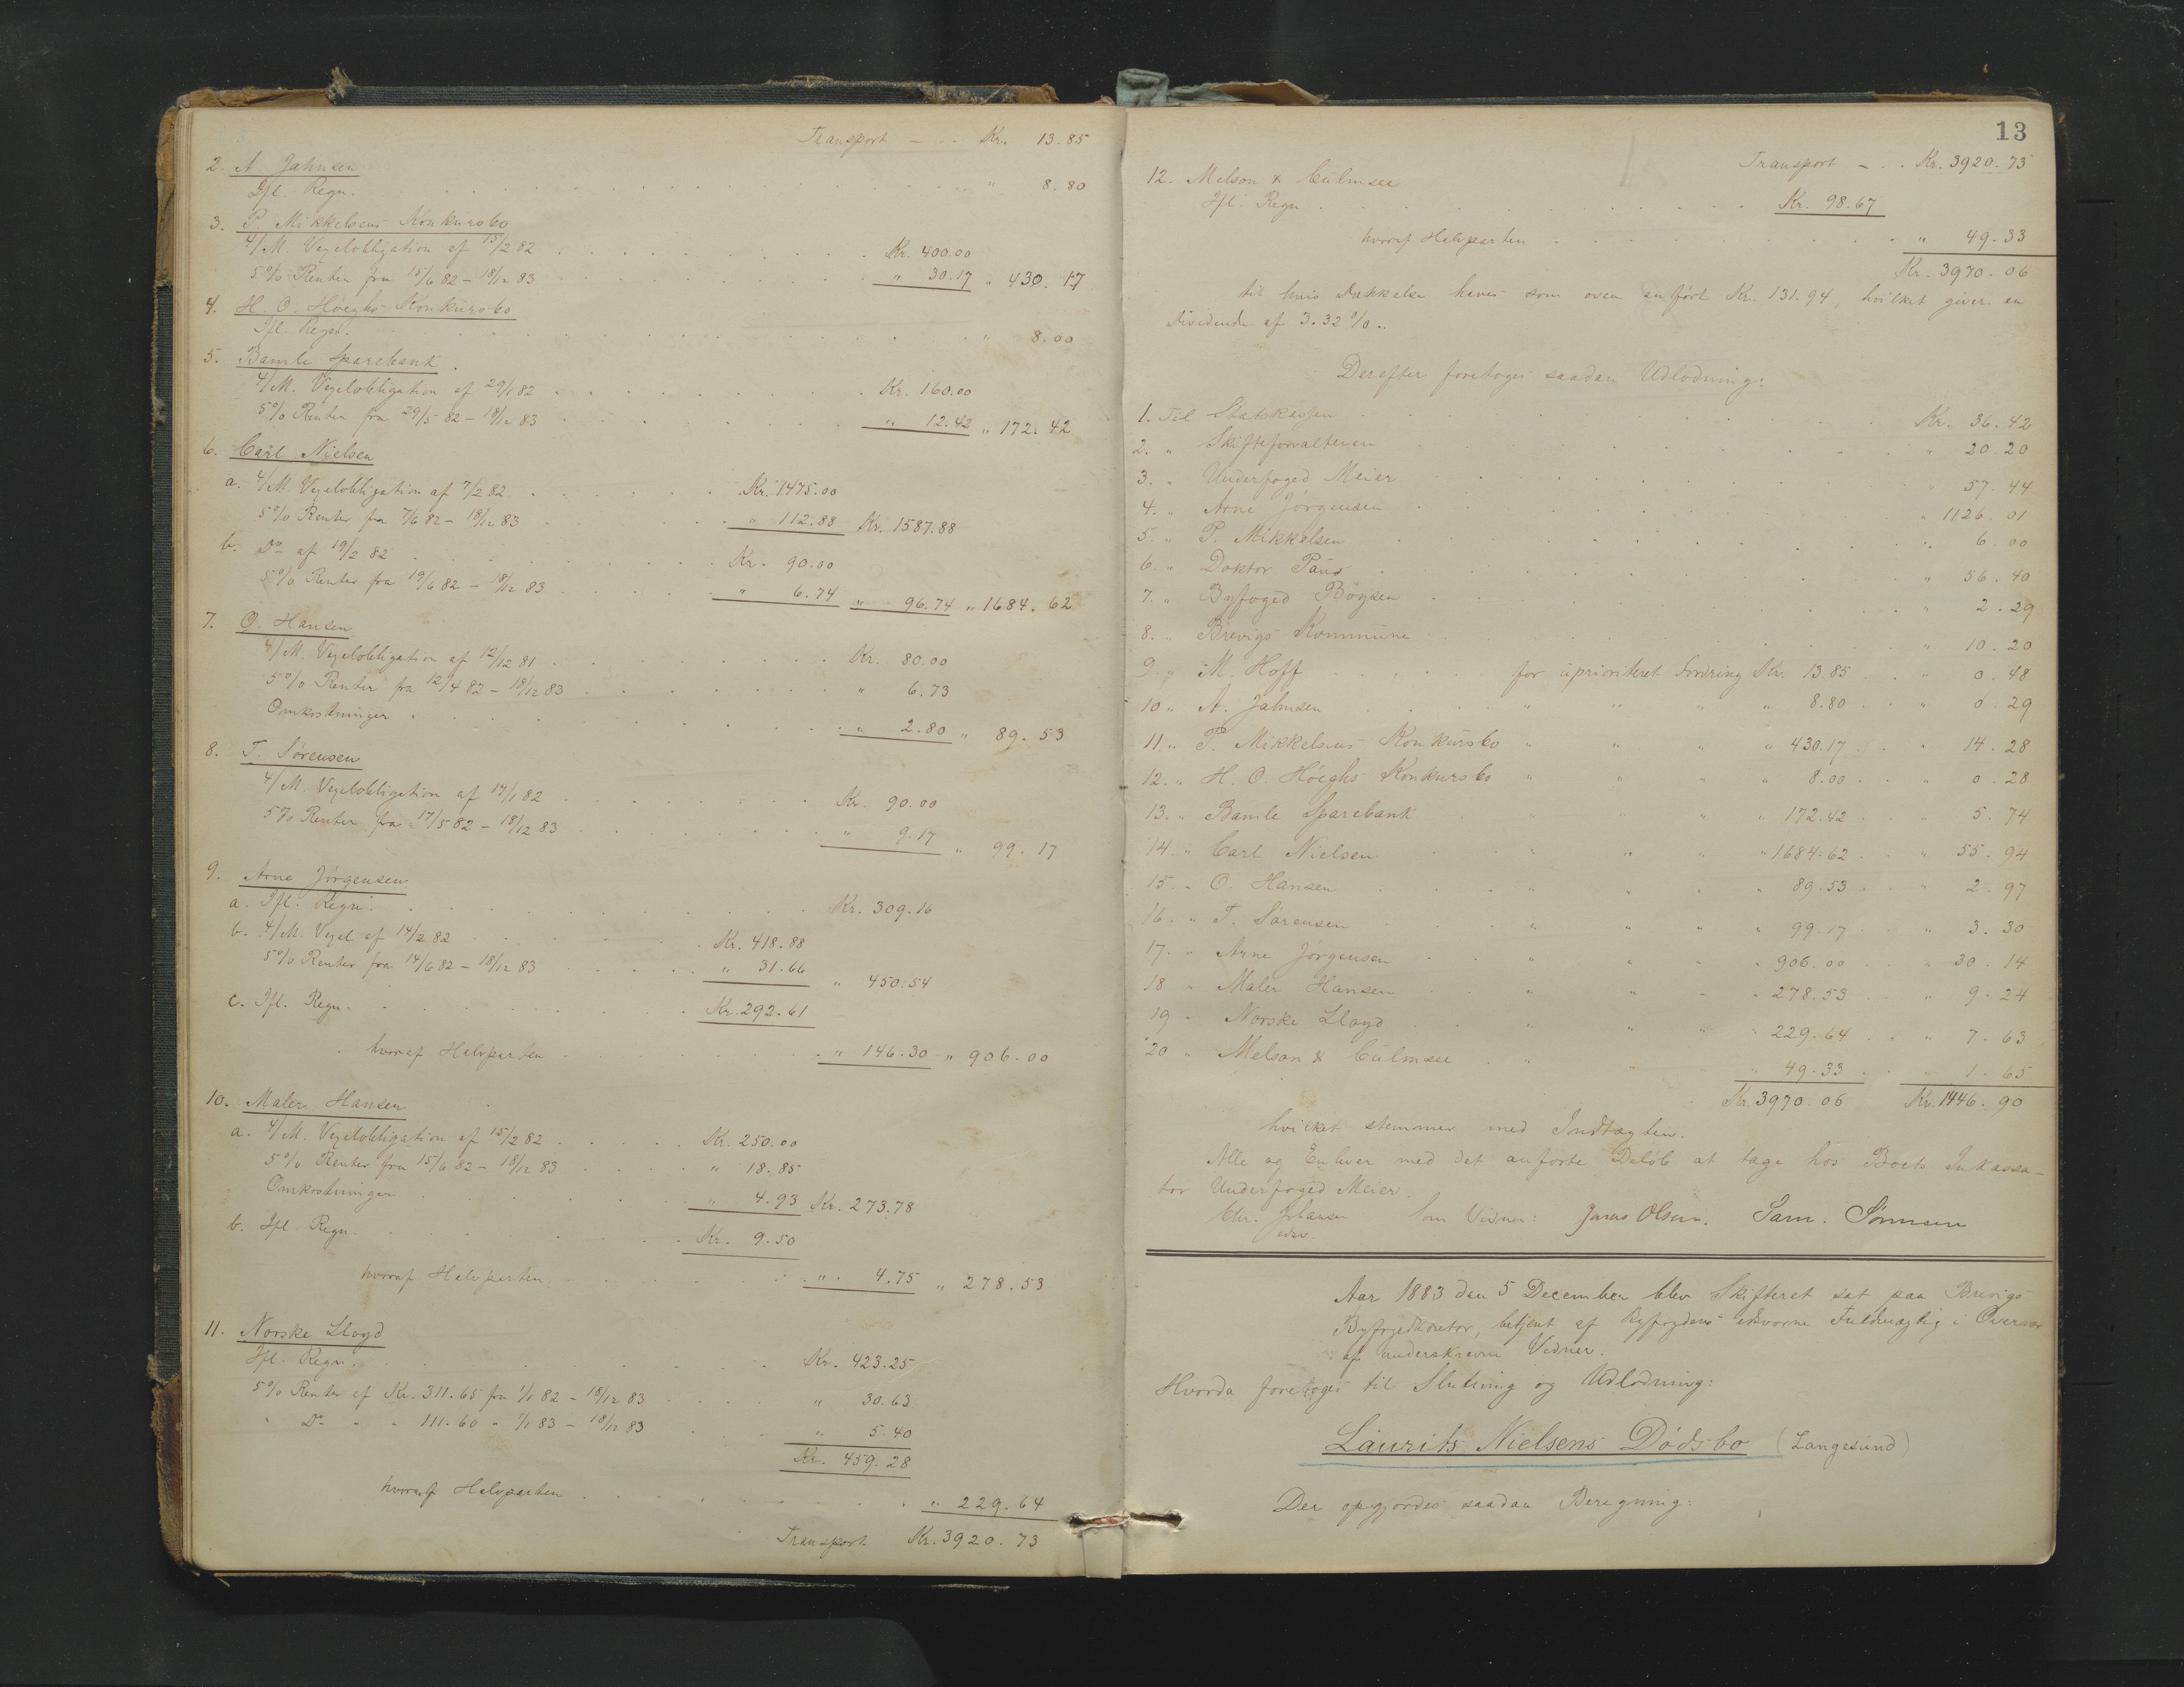 Transport — . . Kr. 13.85
2. A Jahnsen
Ifl. Regn. . . . " 8.80
3. P. Mikkelsens Konkursbo
4/M. Vexelobligation af 15/2 82 . . . Kr. 400.00
5% Renter fra 15/6 82 — 18/12 83 . . . " 30.17 " 430.17
4. H. O. Höeghs Konkursbo
Ifl. Regn. . . . " 8.00
5. Bamle Sparebank
4/M. Vexelobligation af 29/1 82 . . . Kr. 160.00
5% Renter fra 29/5 82 — 18/12 83 . . . " 12.42 " 172.42
6. Carl Nielsen
a. 4/M. Vexelobligation af 7/2 82 . . . Kr. 1475.00
5% Renter fra 7/6 82 — 18/12 83 . . . " 112.88 Kr. 1587.88
b. Do af 19/2 82 . . . Kr. 90.00
5% Renter fra 19/6 82 — 18/12 83 . . . " 6.74 " 96.74 " 1684.62
7. O. Hansen
4/M. Vexelobligation af 12/12 81 . . . Kr. 80.00
5% Renter fra 12/4 82 — 18/12 83 . . . " 6.73
Omkostninger . . . " 2.80 " 89.53
8. T. Sörensen
4/M. Vexelobligation af 17/1 82 . . . Kr. 90.00
5% Renter fra 17/5 82 — 18/12 83 . . . " 9.17 " 99.17
9. Arne Jörgensen
a. Ifl. Regn. . . . Kr. 309.16
b. 4/M. Vexel af 14/2 82 . . . Kr. 418.88
5% Renter fra 14/6 82 — 18/12 83 . . . " 31.66 " 450.54
c. Ifl. Regn. . . . Kr. 292.61
hvoraf Halvparten . . . " 146.30 " 906.00
10. Maler Hansen
a. 4/M. Vexelobligation af 15/2 82 . . . Kr. 250.00
5% Renter fra 15/6 82 — 18/12 83 . . . " 18.85
Omkostninger . . . " 4.93 Kr. 273.78
b. Ifl. Regn. . . . Kr. 9.50
hvoraf Halvparten . . . " 4.75 " 278.53
11. Norske Lloyd
Ifl. Regn. . . . Kr. 423.25
5% Renter af Kr. 311.65 fra 1/1 82 — 18/12 83 . . . " 30.63
" Do " " 111.60 " 1/1 83 — 18/12 83 . . . " 5.40
Kr. 459.28
hvoraf Halvparten . . . " 229.64
Transport Kr. 3920.73
13
Transport — . . Kr. 3920.73
12. Melson & Culmsee
Ifl. Regn . . . Kr. 98.67
hvoraf Halvparten . . . " 49.33
Kr. 3970.06
til hvis Dækkelse haves som oven anfört Kr. 131.94, hvilket giver en
Dividende af 3.32%.
Derefter foretoges saadan Udlodning:
1. Til Statskassen . . . Kr. 36.42
2. " Skifteforvalteren . . . " 20.20
3. " Underfoged Meier . . . " 57.44
4. " Arne Jörgensen . . . " 1126.01
5. " P. Mikkelsen . . . " 6.00
6. " Doktor Paus . . . " 56.40
7. " Byfoged Böysen . . . " 2.29
8. " Brevigs Kommune . . . " 10.20
9. " M. Hoff . . . for uprioriteret Fordring Kr. 13.85 . . " 0.48
10. " A. Jahnsen . . . " " " " 8.80 . . " 0.29
11. " P. Mikkelsens Konkursbo " " " " 430.17 . . " 14.28
12. " H. O. Höeghs Konkursbo " " " " 8.00 . . " 0.28
13. " Bamle Sparebank . " " " " 172.42 . . " 5.74
14. " Carl Nielsen . . " " " " 1684.62 . . " 55.94
15. " O. Hansen . . . " " " " 89.53 . . " 2.97
16. " T. Sörensen . . . " " " " 99.17 . . " 3.30
17. " Arne Jörgensen . . " " " " 906.00 . . " 30.14
18 " Maler Hansen . . " " " " 278.53 . . " 9.24
19 " Norske Lloyd . . " " " " 229.64 . . " 7.63
20 " Melson & Culmsee . " " " " 49.33 . . " 1.65
Kr. 3970.06 Kr. 1446.90
hvilket stemmer med Indtægten.
Alle og Enhver med det anförte Belöb at tage hos Boets Inkassa-
tor Underfoged Meier.
Chr. Johansen Som Vidner: Jonas Olsen. Sam. Sörensen
edsv.
Aar 1883 den 5 December blev Skifteret sat paa Brevigs
Byfogedkontor, betjent af Byfogdens edsvorne Fuldmægtig i Overvær
af underskrevne Vidner.
Hvorda foretoges til Slutning og Udlodning:
Laurits Nielsens Dödsbo (Langesund)
Der opgjordes saadan Beregning: